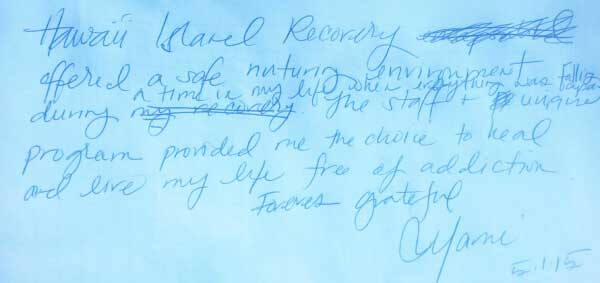 Hawaii Island Recovery
offered a safe nuturing environment
a time in my life when everything was falling apart
during my recovery. The staff + unique
program provided me the choice to heal
and live my life free of addiction.
Forever grateful
5.1.15